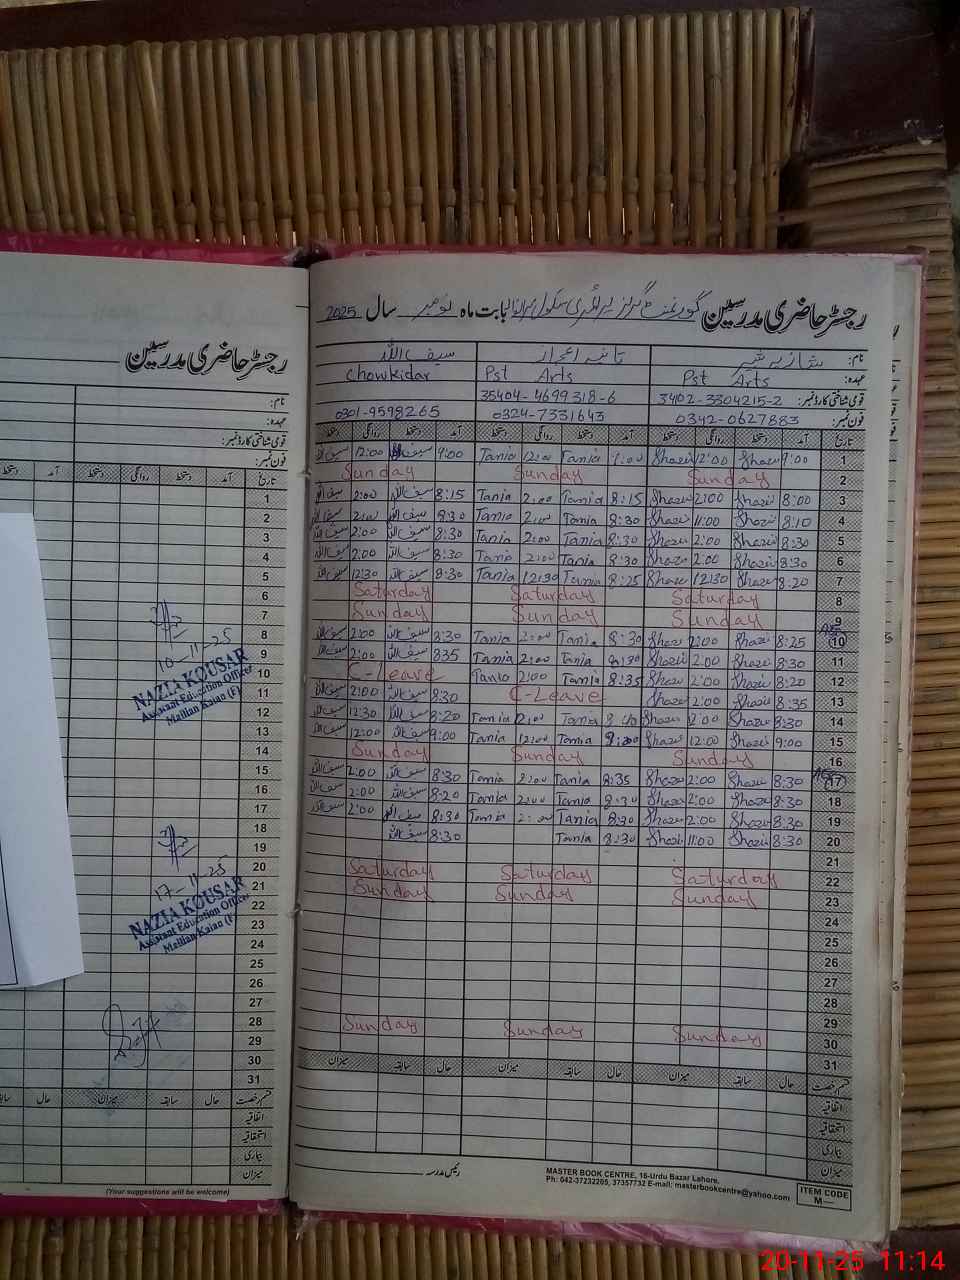 رجسٹر حاضری مدرسین گورنمنٹ گرلز پرائمری سکول بابت ماہ نومبر سال 2025
نام: شازیہ بشیر تانیہ اعجاز سیف اللہ
عہدہ: Pst Arts Pst Arts Chowkidar
قومی شناختی کارڈ نمبر: 3402-3304215-2 35404-4699318-6
فون نمبر: 0342-0627883 0324-7331643 0301-9598265
تاریخ آمد دستخط روانگی دستخط آمد دستخط روانگی دستخط آمد دستخط روانگی دستخط
1 9:00 Shazi 12:00 Shazi 9:00 Tania 12:00 Tania 9:00 سیف اللہ 12:00 سیف اللہ
2 Sunday Sunday Sunday
3 8:00 Shazi 2:00 Shazi 8:15 Tania 2:00 Tania 8:15 سیف اللہ 2:00 سیف اللہ
4 8:10 Shazi 11:00 Shazi 8:30 Tania 2:00 Tania 8:30 سیف اللہ 2:00 سیف اللہ
5 8:30 Shazi 2:00 Shazi 8:30 Tania 2:00 Tania 8:30 سیف اللہ 2:00 سیف اللہ
6 8:30 Shazi 2:00 Shazi 8:30 Tania 2:00 Tania 8:30 سیف اللہ 2:00 سیف اللہ
7 8:20 Shazi 12:30 Shazi 8:25 Tania 12:30 Tania 8:30 سیف اللہ 12:30 سیف اللہ
8 Saturday Saturday Saturday
9 Sunday Sunday Sunday
10 8:25 Shazi 2:00 Shazi 8:30 Tania 2:00 Tania 8:30 سیف اللہ 2:00 سیف اللہ
11 8:30 Shazi 2:00 Shazi 8:30 Tania 2:00 Tania 835 سیف اللہ 2:00 سیف اللہ
12 8:20 Shazi 2:00 Shazi 8:35 Tania 2:00 Tania C-Leave
13 8:35 Shazi 2:00 Shazi C-Leave 8:30 سیف اللہ 2:00 سیف اللہ
14 8:30 Shazi 2:00 Shazi Tania Tania 8:20 سیف اللہ 12:30 سیف اللہ
15 9:00 Shazi 12:00 Shazi Tania 12:00 Tania 9:00 سیف اللہ 12:00 سیف اللہ
16 Sunday Sunday Sunday
17 8:30 Shazi 2:00 Shazi 8:35 Tania 2:00 Tania 8:30 سیف اللہ 2:00 سیف اللہ
18 8:30 Shazi 2:00 Shazi 8:30 Tania 2:00 Tania 8:20 سیف اللہ 2:00 سیف اللہ
19 8:30 Shazi 2:00 Shazi 8:30 Tania 2:00 Tania 8:30 سیف اللہ 2:00 سیف اللہ
20 8:30 Shazi 11:00 Shazi 8:30 Tania 8:30 سیف اللہ
21
22 Saturday Saturday Saturday
23 Sunday Sunday Sunday
24
25
26
27
28
29
30 Sunday Sunday Sunday
31
قسم رخصت حال سابقہ میزان حال سابقہ میزان حال سابقہ میزان
اتفاقیہ
استحقاقیہ
بیماری
میزان
رئیس مدرسہ
MASTER BOOK CENTRE, 16-Urdu Bazar Lahore,
Ph: 042-37232205, 37357732 E-mail: masterbookcentre@yahoo.com
ITEM CODE
M—
رجسٹر حاضری مدرسین
نام:
عہدہ:
قومی شناختی کارڈ نمبر:
فون نمبر:
تاریخ آمد دستخط روانگی دستخط آمد دستخط
1
2
3
4
5
6
7
8
9
10
11
12
13
14
15
16
17
18
19
20
21
22
23
24
25
26
27
28
29
30
31
10-11-25
NAZIA KOUSAR
Assistant Education Officer
Mallian Kalan (F)
17-11-25
NAZIA KOUSAR
Assistant Education Officer
Mallian Kalan (F)
قسم رخصت حال سابقہ میزان حال سابقہ
اتفاقیہ
استحقاقیہ
بیماری
میزان
(Your suggestions will be welcome)
20-11-25 11:14